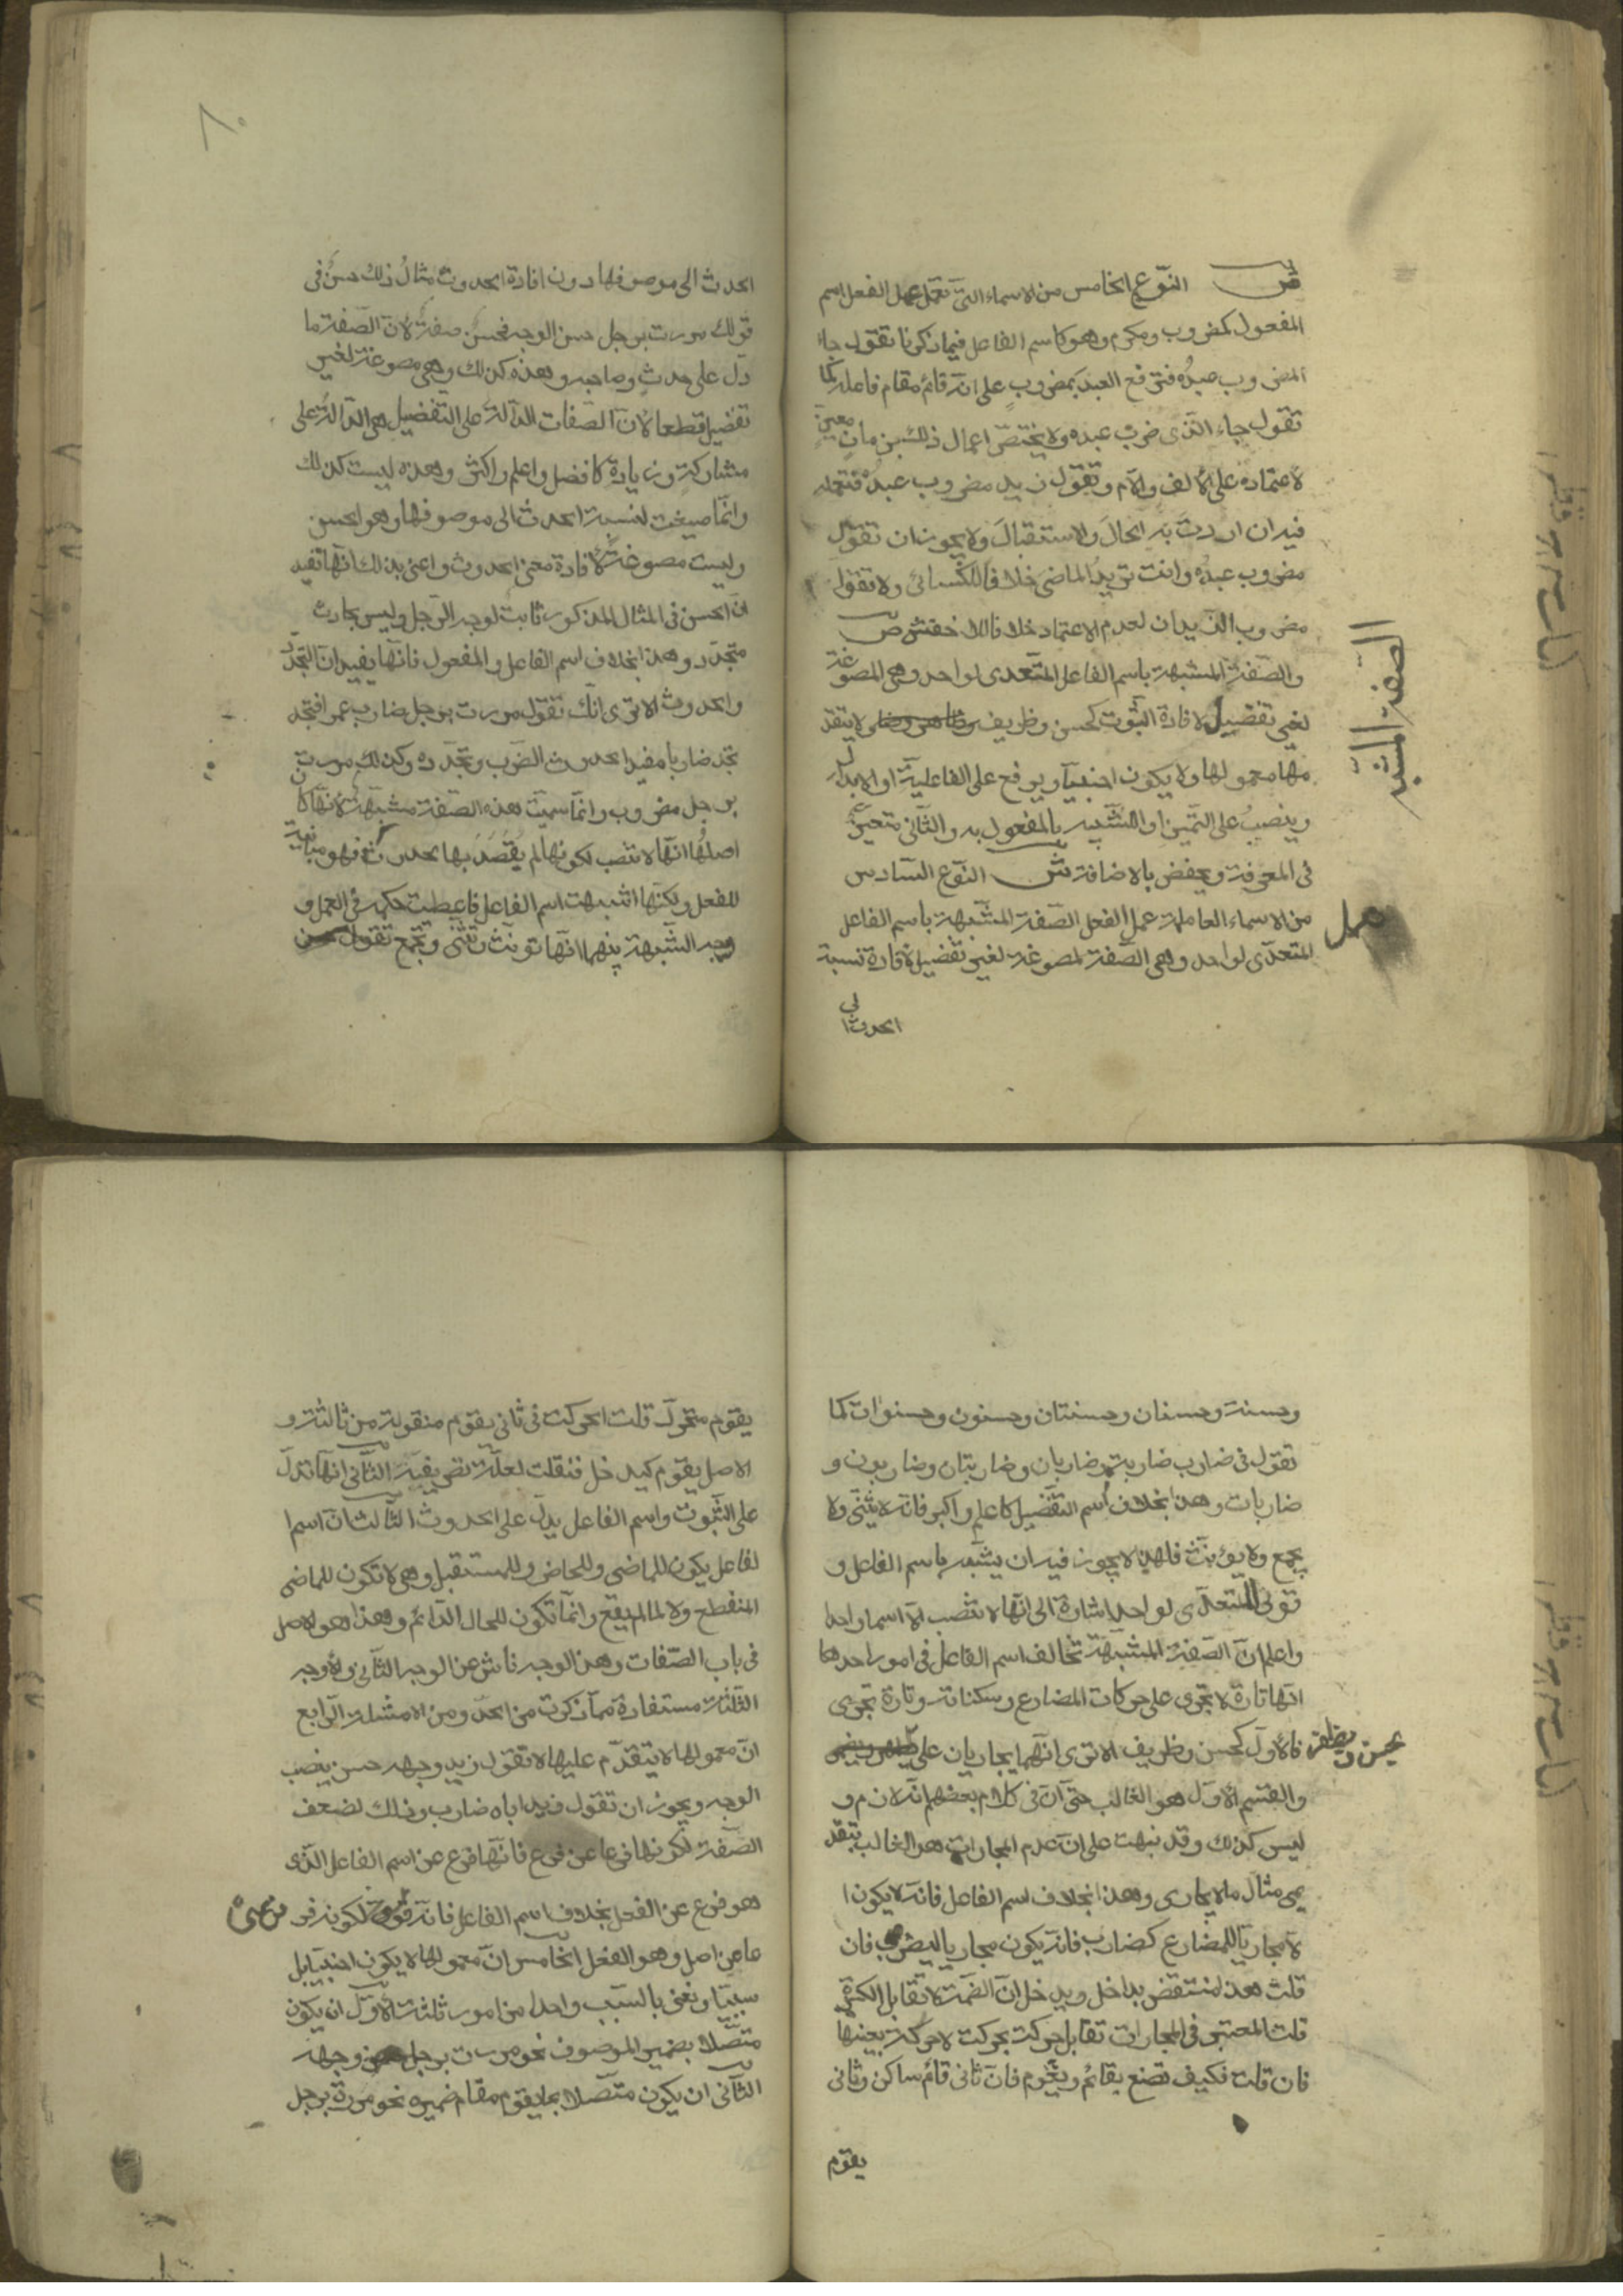 ش النوع الخامس من الاسماء التى تعمل عمل الفعل اسم
المفعول كمضروب ومكرم وهو كاسم الفاعل فيما ذكرنا تقول جاء
المضروب عبدُه فترفع العبد بمضروبٍ على انه قائم مقام فاعله كما
تقول جاء الذى ضرب عبده ولا يختصّ اعمال ذلك بزمانٍ معينٍ
لاعتماده على الالف واللام وتقول زيد مضروب عبدُه فتعمله
فيه ان اردت به الحالَ والاستقبالَ ولا يجوز ان تقول
مضروب عبدُه وانت تريدُ الماضىَ خلافا للكسائى ولا تقول
مضروب الزيدان لعدم الاعتماد خلافا للاخفش ص
والصّفة المشبهة باسم الفاعل المتعدى لواحد وهى المصوغة
لغير تفضيل لافادة الثبوت كحسن وظريف وطاهر وضامر لا يتقد
مها معمولها ولا يكون اجنبيّا ويرفع على الفاعلية او الابدال
وينصبُ على التميز او التشبيه بالمفعول به والثّانى متعيّن
فى المعرفة ويخفض بالاضافة ش النوع السادس
من الاسماء العاملة عمل الفعل الصّفة المشبّهة باسم الفاعل
المتعدّى لواحد وهى الصّفة المصوغة لغير تفضيل لافادة نسبة
الحدث الى
الصفة المشبه
عمل
٨٠
الحدث الى موصوفها دون افادة الحدوث مثالُ ذلك حسنٌ فى
قولك مررت برجل حسن الوجه فحسنٌ صفةٌ لانّ الصّفة ما
دلّ على حدثٍ وصاحبه وهذه كذلك وهى مصوغة لغير
تفضيل قطعا لانّ الصّفات الدّالة على التفضيل هى الدّالةُ على
مشاركةٍ وزيادةٍ كافضل واعلم واكثر وهذه ليست كذلك
وانّما صيغت لنسبة الحدث الى موصوفها وهو الحسن
وليست مصوغةً لافادة معنى الحدوث واعنى بذلك انّها تفيد
انّ الحسن فى المثال المذكور ثابت لوجه الرّجل وليس بحادث
متجدّد وهذا بخلاف اسم الفاعل والمفعول فانّها يفيدان التجدّد
والحدوث الا ترى انّك تقول مررت برجل ضارب عمرا فتجد
تجد ضاربا مفيدا لحدوث الضّرب وتجدّده وكذلك مررت
برجل مضروب وانّما سميّت هذه الصّفة مشبّهةً لانّها كان
اصلُها انّها لا تنصب لكونها لم يُقصَد بها لحدوث فهو مباينة
للفعل ولكنّها اشبهت اسم الفاعل فاعطيت حكمه فى العمل و
وجه الشّبهة بينهما انّها تونّث وتثنّى وتجمع تقول حسن
وحسنة وحسنان وحسنتان وحسنون وحسنوات كما
تقول فى ضارب ضاربة وضاربان وضاربتان وضاربون و
ضاربات وهذا بخلاف اسم التفضيل كاعلم واكبر فانّه لا يثنّى ولا
يجمع ولا يونّث فلهذا لا يجوز فيه ان يشبّه باسم الفاعل و
قولى المتعدّى لواحد اشارة الى انّها لا تنصب الّا اسما واحدا
واعلم انّ الصّفة المشبّهة تخالف اسم الفاعل فى امور احدها
انّها تارة لا تجرى على حركات المضارع وسكناته وتارة تجرى
فالاوّل كحسن وظريف الا ترى انّهما لا يجاريان على
يحسن ويظرف
والقسم الاوّل هو الغالب حتى انّ فى كلام بعضهم انّه لازم و
ليس كذلك وقد نبهت على انّ عدم المجارات هو الغالب بتقد
يمى مثال ما لا يجارى وهذا بخلاف اسم الفاعل فانّه لا يكون ا
لّا مجاريا للمضارع كضارب فانّه يكون مجاريا ليضرب فان
قلت هذا منتقض بداخل ويدخل انّ الضّمّة لا تقابل الكسرة
قلت المعتبر فى المجارات تقابل حركت بحركت لا حركة بعينها
فان قلت فكيف تصنع بقائم ويقوم فانّ ثانى قائم ساكن وثانى
يقوم
يقوم متحرّك قلت الحركت فى ثانى يقوم منقولة من ثالثة و
الاصل يقوم كيدخل فنقلت لعلّة تصريفيّة الثّانى انّها تدلّ
على الثّبوت واسم الفاعل يدلّ على الحدوث الثّالث انّ اسم ا
لفاعل يكون للماضى وللحاضر وللمستقبل وهى لا تكون للماضى
المنقطع ولا لما لم يقع وانّما تكون للحال الدّائم وهذا هو الاصل
فى باب الصّفات وهذا الوجه ناش عن الوجه الثّانى والاوجه
الثّلثة مستفادة ممّا ذكرت من الحدّ ومن الامثلة الرّابع
انّ معمولها لا يتقدّم عليها لا تقول زيد وجهه حسن بنصب
الوجه ويجوز ان تقول زيد اباه ضارب وذلك لضعف
الصّفة لكونها فرعا عن فرع فانّها فرع عن اسم الفاعل الذّى
هو فرع عن الفعل بخلاف اسم الفاعل فانّه قوىّ لكونه فر
عا عن اصل وهو الفعل الخامس انّ معمولها لا يكون اجنبيّا بل
سببيّا ونعنى بالسّبب واحدا من امور ثلثة الاوّل ان يكون
متّصلا بضمير الموصوف نحو مررت برجل حسن وجهه
الثّانى ان يكون متّصلا بما يقوم مقام ضميره نحو مررة برجل